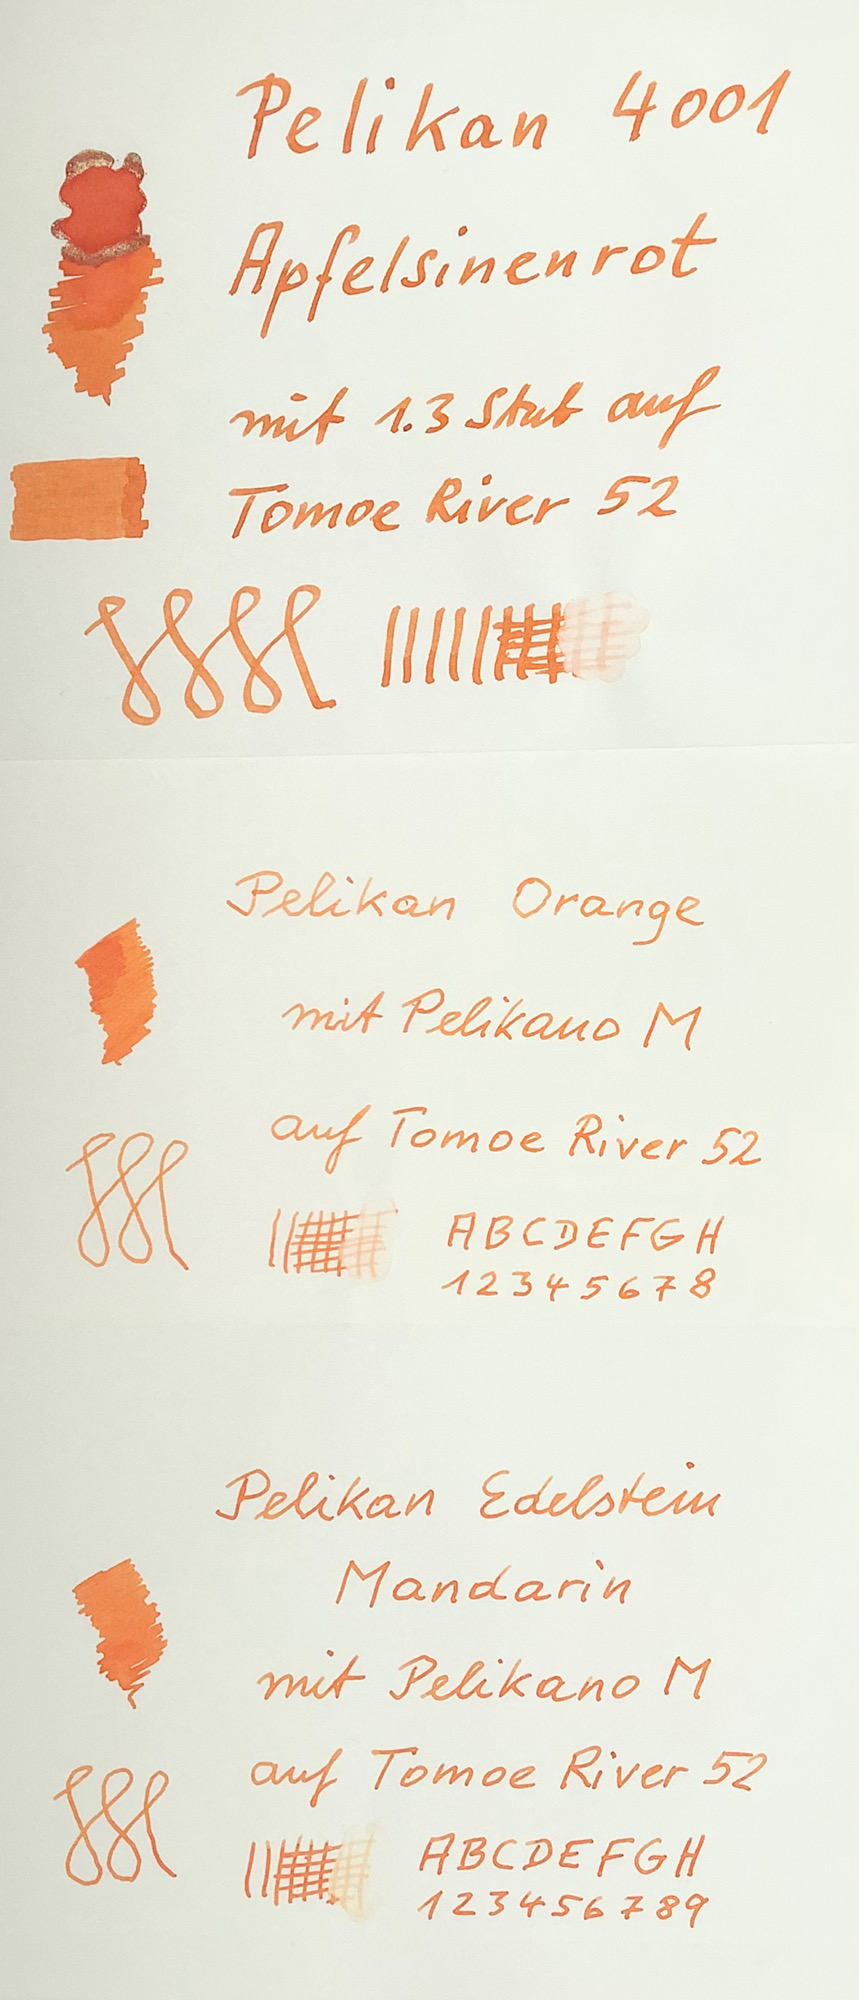 Pelikan 4001
Apfelsinenrot
mit 1.3 Stub auf
Tomoe River 52
Pelikan Orange
mit Pelikano M
auf Tomoe River 52
ABCDEFGH
12345678
Pelikan Edelstein
Mandarin
mit Pelikano M
auf Tomoe River 52
ABCDEFGH
123456789